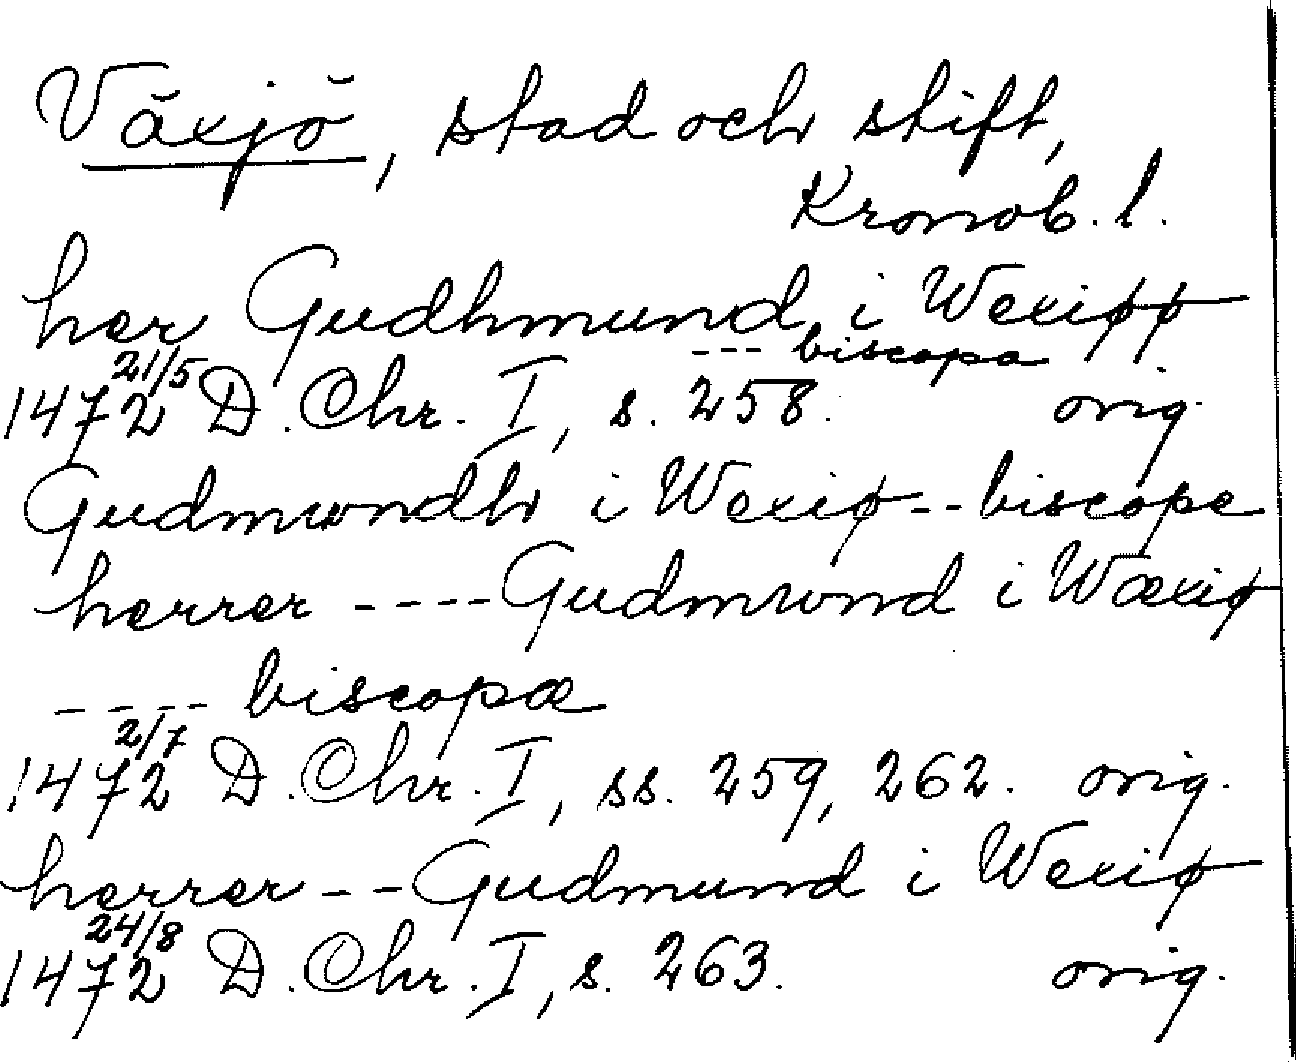 Växjö, stad och stift,
Kronob. l.
her Gudhmund i Wexiøø
--- biscopa
1472 21/5 D. Chr. I, s. 258. orig.
Gudmwndh i Wexiø -- biscope
herrer ---- Gudmwnd i Wæxiø
---- biscopæ
1472 2/7 D. Chr. I, ss. 259, 262. orig.
herrer -- Gudmund i Wexiø
1472 24/8 D. Chr. I, s. 263. orig.